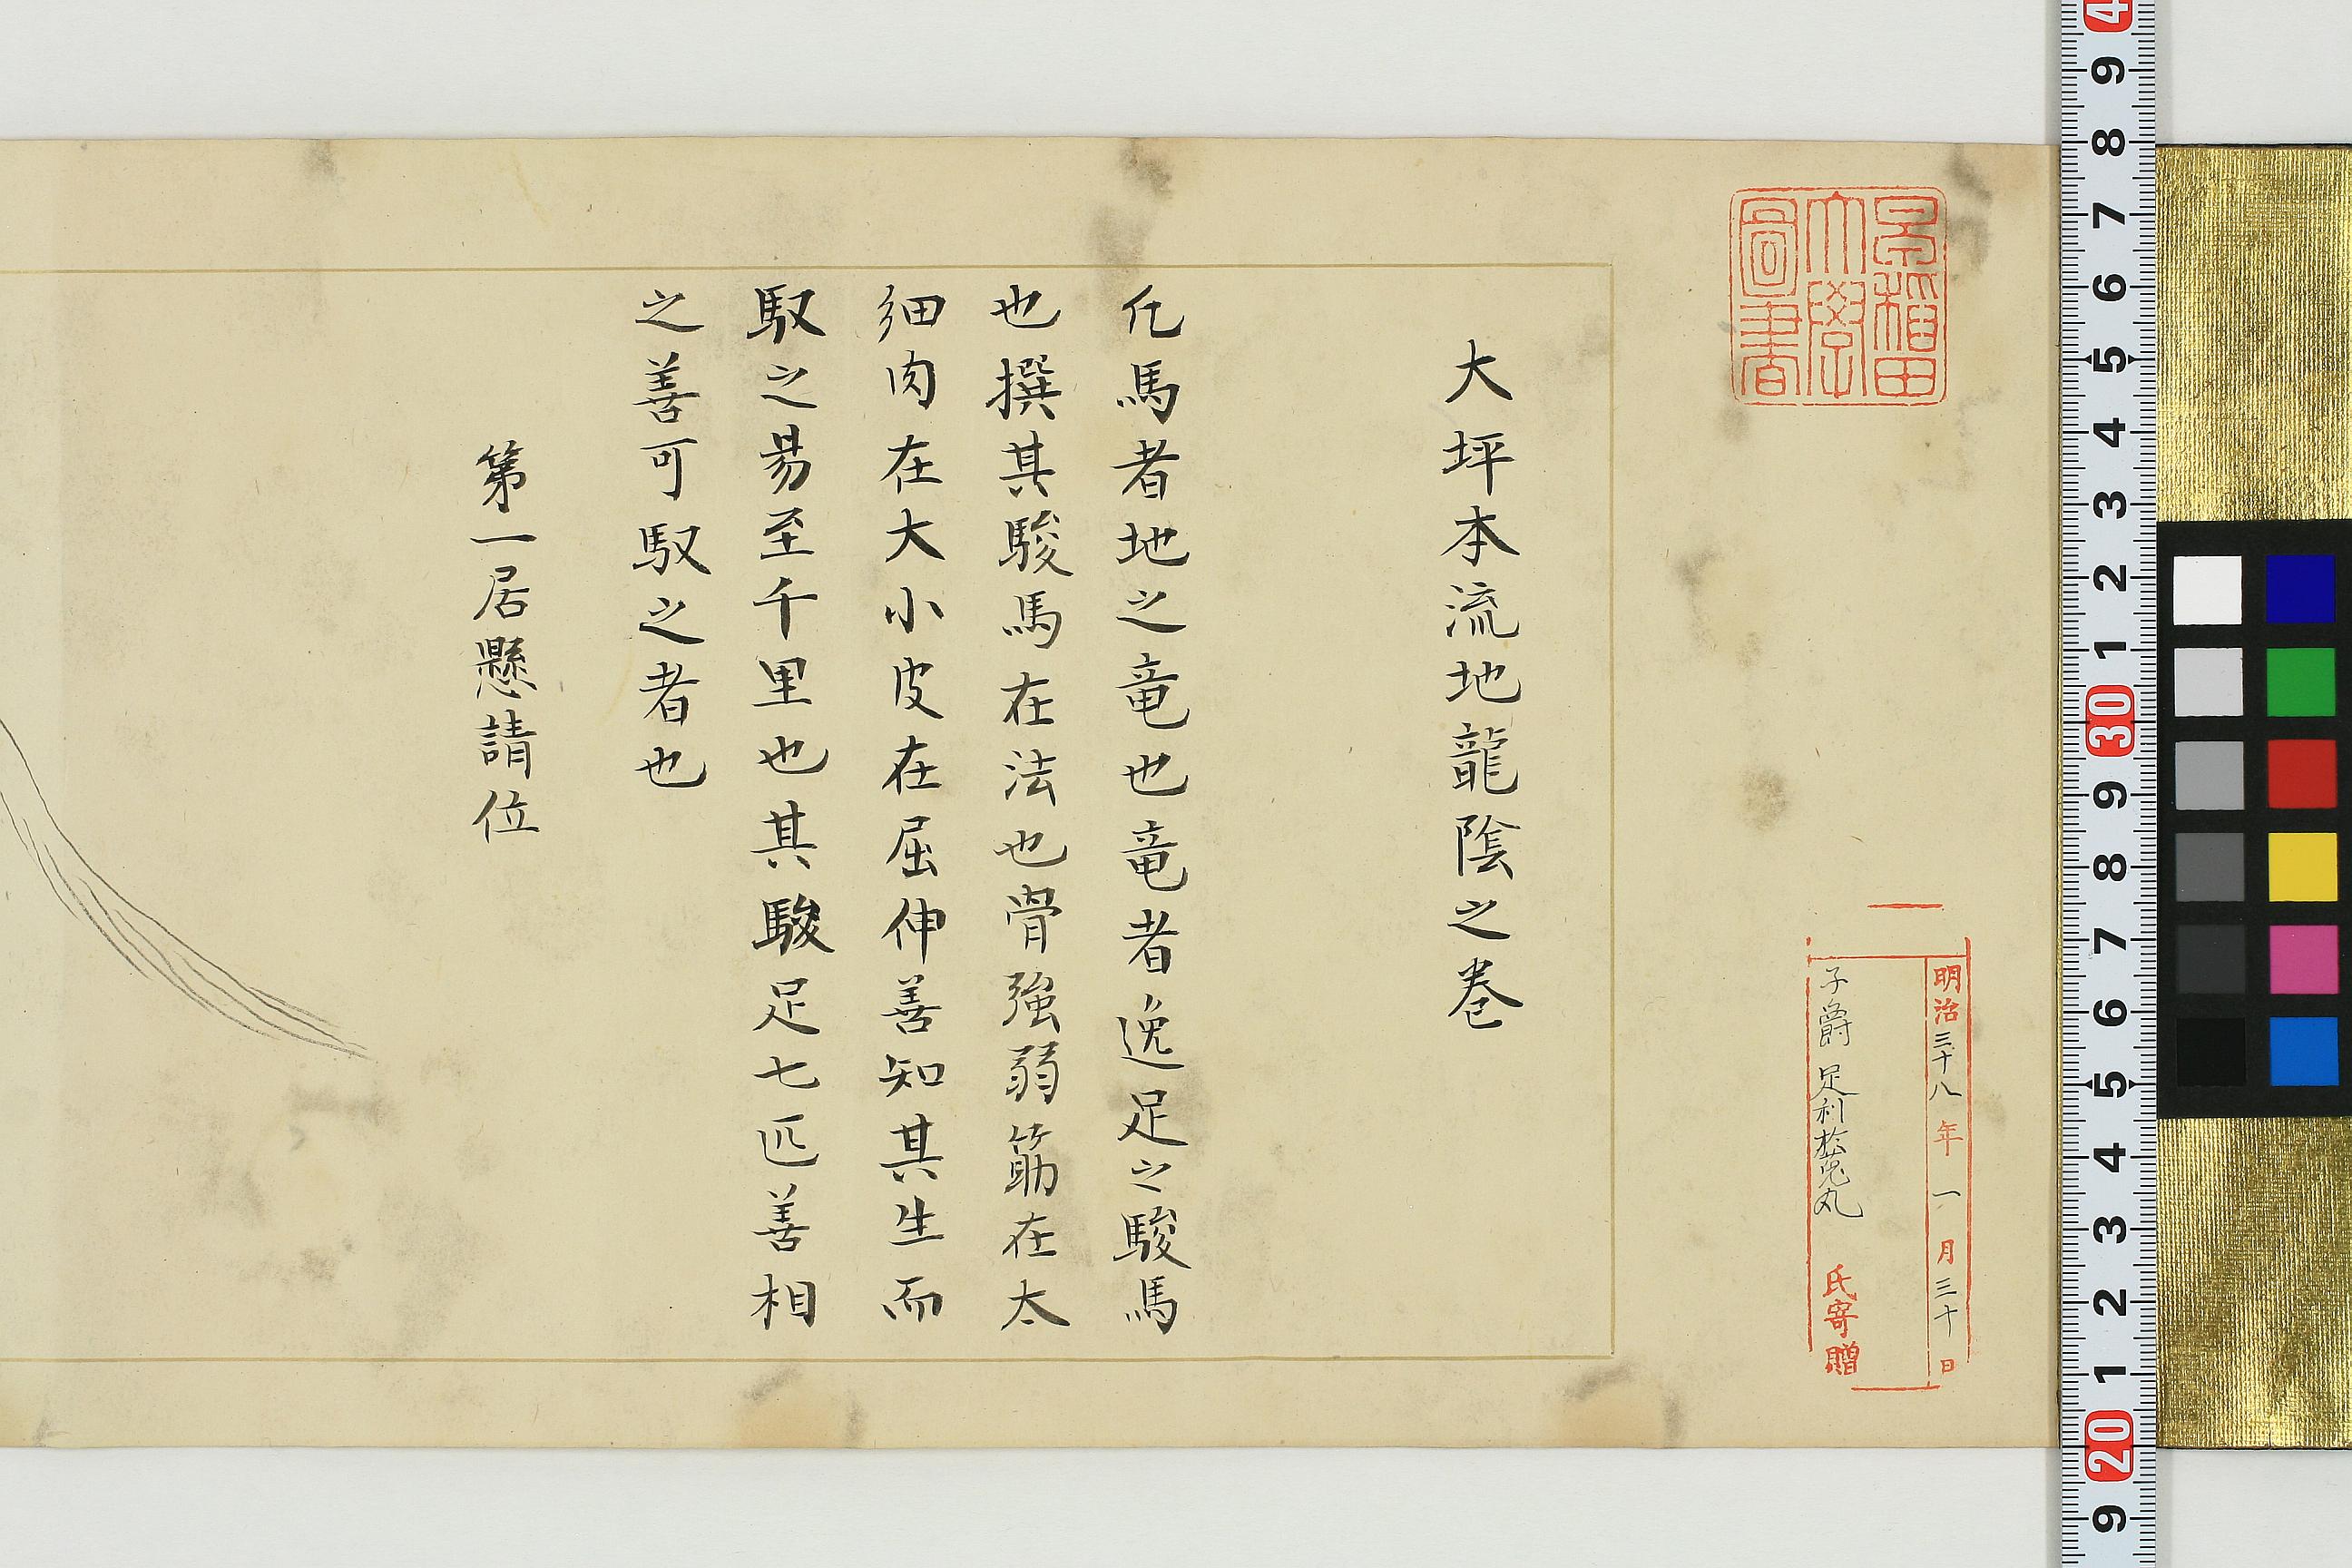 早稲田
大學
圖書
明治三十八年一月三十日
子爵 足利於菟丸 氏寄贈
大坪本流地龍陰之巻
凡馬者地之竜也竜者逸足之駿馬
也撰其駿馬在法也骨強弱筋在太
細肉在大小皮在屈伸善知其生而
馭之昜至千里也其駿足七匹善相
之善可馭之者也
第一居懸請位
4
9
8
7
6
5
4
3
2
1
30
9
8
7
6
5
4
3
2
1
20
9